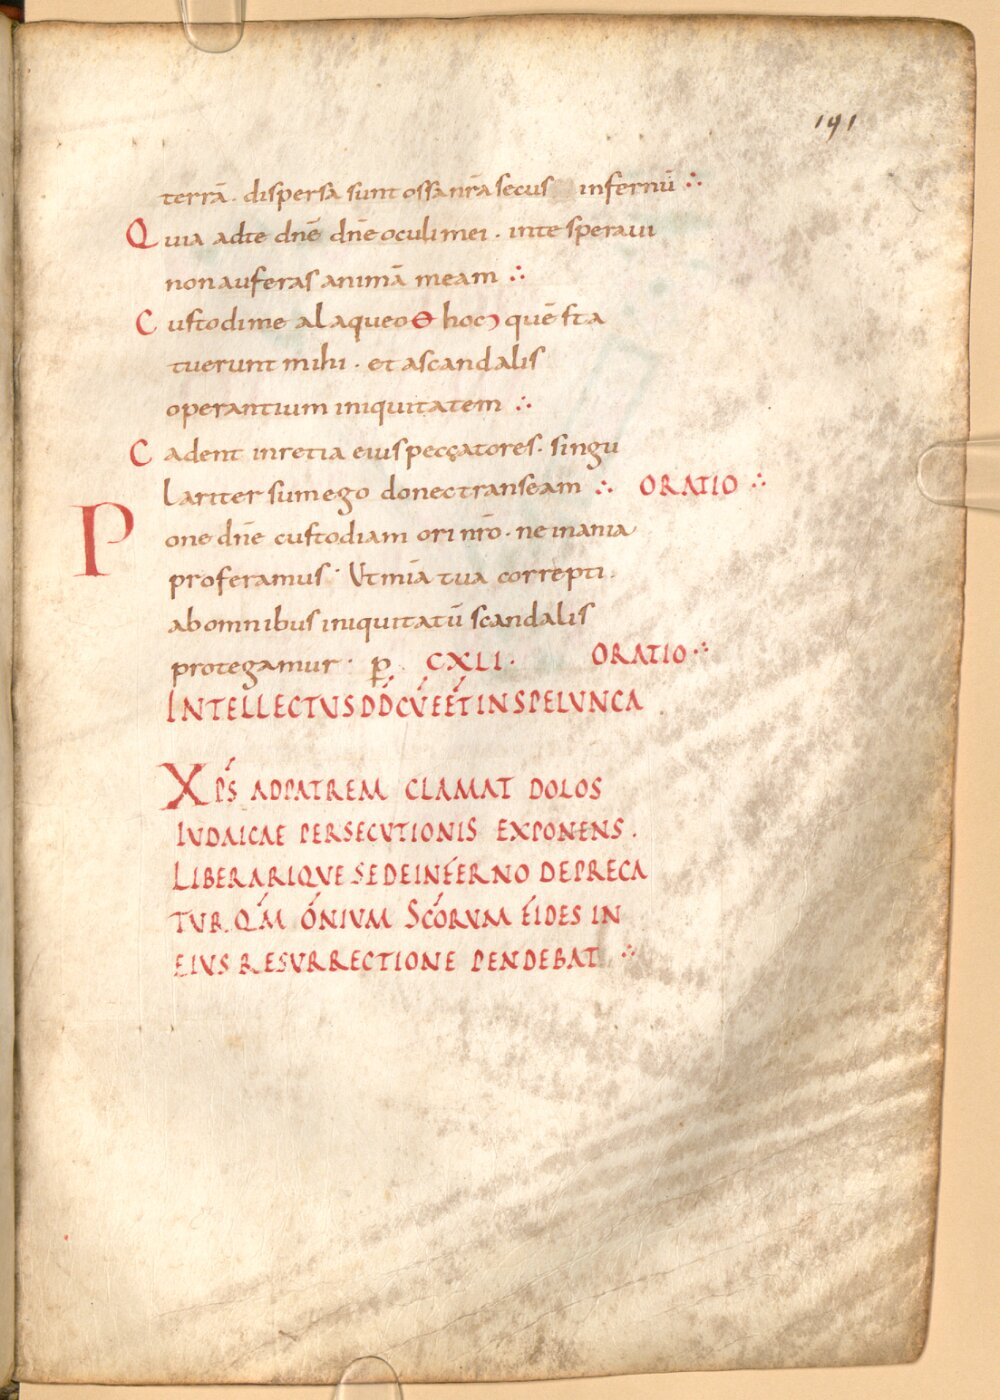 191
terrā. dispersa sunt ossa nr̄a secus infernū ∴
Quia ad te dn̄e dn̄e oculi mei. in te speraui
non auferas animā meam ∴
Custodi me a laqueo ɵ hoc quē sta
tuerunt mihi. et a scandalis
operantium iniquitatem ∴
Cadent in retia eius peccatores. singu
lariter sum ego donec transeam ∴ ORATIO ∴
Pone dn̄e custodiam ori nr̄o. ne inania
proferamus. Ut mīa tua correpti.
ab omnibus iniquitatū scandalis
protegamur. p̲ CXLI. ORATIO ∴
INTELLECTUS DD CŪ EĒT IN SPELUNCA
XPS AD PATREM CLAMAT DOLOS
IUDAICAE PERSECUTIONIS EXPONENS.
LIBERARIQUE SE DE INFERNO DEPRECA
TUR. QM̄ ŌNIUM SC̄ORUM FIDES IN
EIUS RESURRECTIONE PENDEBAT ∴